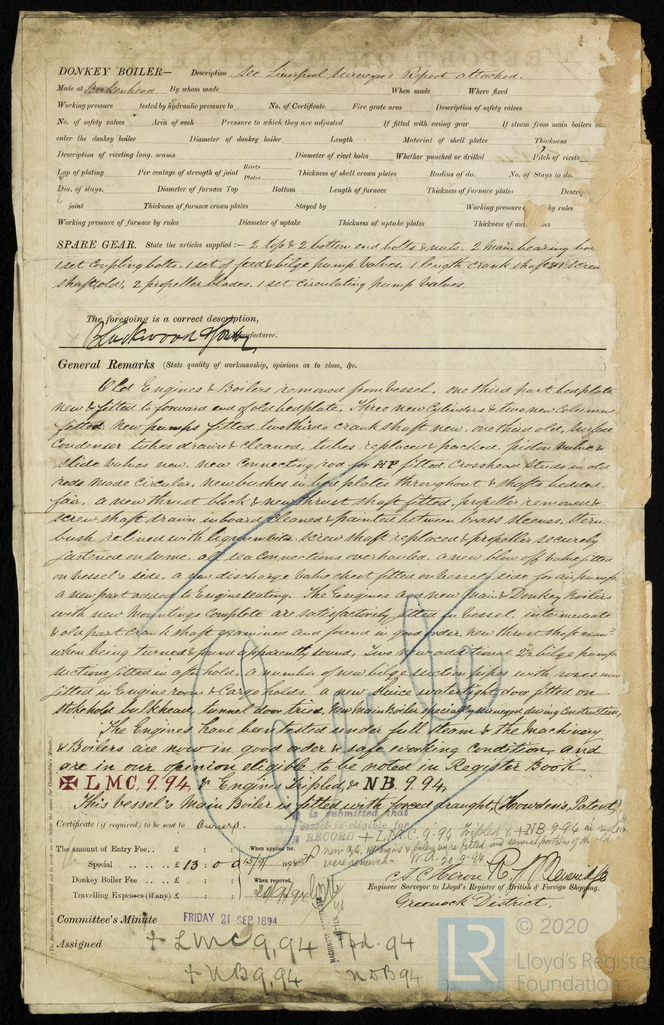 DONKEY BOILER— Description See Liverpool Surveyors Report attached.
Made at Birkenhead By whom made When made Where fixed
Working pressure tested by hydraulic pressure to No. of Certificate Fire grate area Description of safety valves
No. of safety valves Area of each Pressure to which they are adjusted If fitted with easing gear If steam from main boilers can
enter the donkey boiler Diameter of donkey boiler Length Material of shell plates Thickness
Description of riveting long. seams Diameter of rivet holes Whether punched or drilled Pitch of rivets
Lap of plating Per centage of strength of joint Rivets Plates Thickness of shell crown plates Radius of do. No. of Stays to do.
Dia. of stays. Diameter of furnace Top Bottom Length of furnace Thickness of furnace plates
joint Thickness of furnace crown plates Stayed by Working pressure by rules
Working pressure of furnace by rules Diameter of uptake Thickness of uptake plates Thickness of
SPARE GEAR. State the articles supplied:— 2 top & 2 bottom end bolts & nuts, 2 main bearing
1 set coupling bolts, 1 set of feed & bilge pump valves, 1 length crank shaft & screw
shaft old, 2 propeller blades, 1 set circulating pump valves.
The foregoing is a correct description,
Blackwood & Gordon Manufacturer.
General Remarks (State quality of workmanship, opinions as to class, &c.
Old Engines & Boilers removed from vessel, one third part bedplate
new & fitted to forward end of old bedplate, Three new Cylinders & two new columns
fitted. New pumps fitted, two thirds crank shaft new, one third old, surface
Condenser tubes drawn & cleaned, tubes replaced & packed, piston valve &
slide valves new, new Connecting rod for HP fitted Crosshead Studs in old
rods made circular, new bushes in throughout & shafts bedded
fair, a new thrust block & new thrust shaft fitted, propeller removed &
screw shaft drawn inboard cleaned & painted between brass sleeves, stern
bush relined with lignumvitae screw shaft replaced & propeller securely
fastened on same, all sea Connections overhauled, a new blow off valve fitted
on vessel's side, a new discharge valve chest fitted on vessel's side for air pump
a new part added to Engine seating. The Engines and new Main & Donkey Boilers
with new Mountings Complete are satisfactorily fitted in vessel, intermediate
& old part Crank shaft examined and found in good order, new thrust shaft
when being turned & found apparently sound, Two new additional bilge pump
suctions fitted in after hold, a number of new bilge suction pipes with roses now
fitted in Engine room & Cargo holds, a new sluice watertight door fitted on
stokehold bulkhead, tunnel door tried, New Main Boiler specially surveyed during Construction,
The Engines have been tested under full steam & the Machinery
& Boilers are now in good order & safe working condition and
are in our opinion eligible to be noted in Register Book
✠ LMC, 9.94, & Engines Tripled, & NB, 9.94,
This vessel's Main Boiler is fitted with forced draught, (Howden's Patent)
Certificate (if required) to be sent to Owners.
It is submitted that
this vessel is eligible for
THE RECORD + LMC 9.94 Tripled & + NB 9.94
The amount of Entry Fee.. £ : : When applied for,
Special £ 13 : 0 : 0 15/9/1894
were removed W.A. 20.9.94
Donkey Boiler Fee £ : : When received,
Travelling Expenses (if any) £ : : 20/9/94
Engineer Surveyor to Lloyd's Register of British & Foreign Shipping.
Greenock District.
Committee's Minute FRIDAY 21 SEP 1894
Assigned + LMC 9,94 Fd. 94
+ NB 9,94 NDB 94
© 2020
LR Lloyd's Register
Foundation